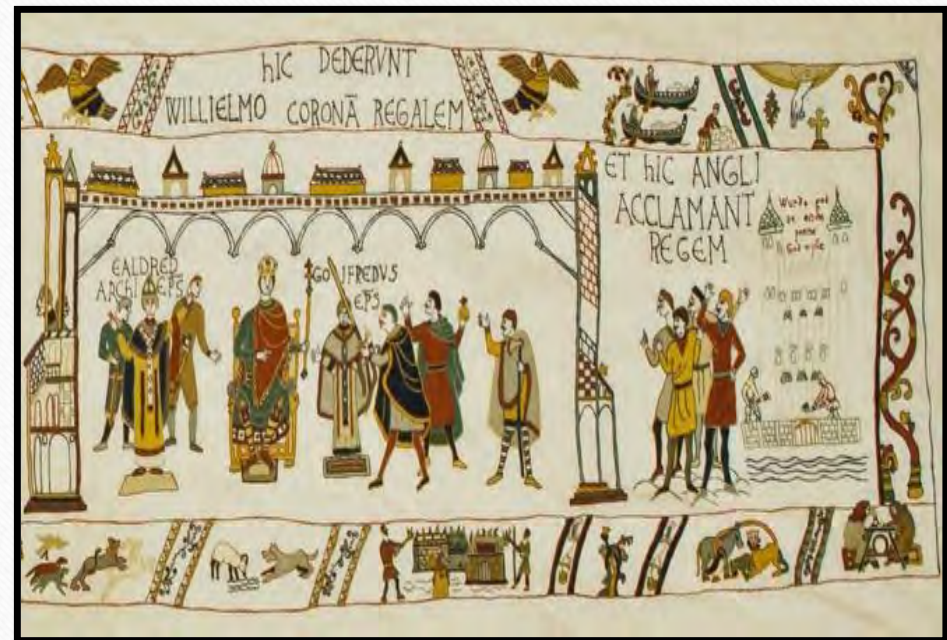 hIC DEDERVNT
WILLIELMO CORONĀ REGALEM
EALDRED
ARCHI EPS
GO IFREDVS
EPS
ET hIC ANGLI
ACCLAMANT
REGEM
God